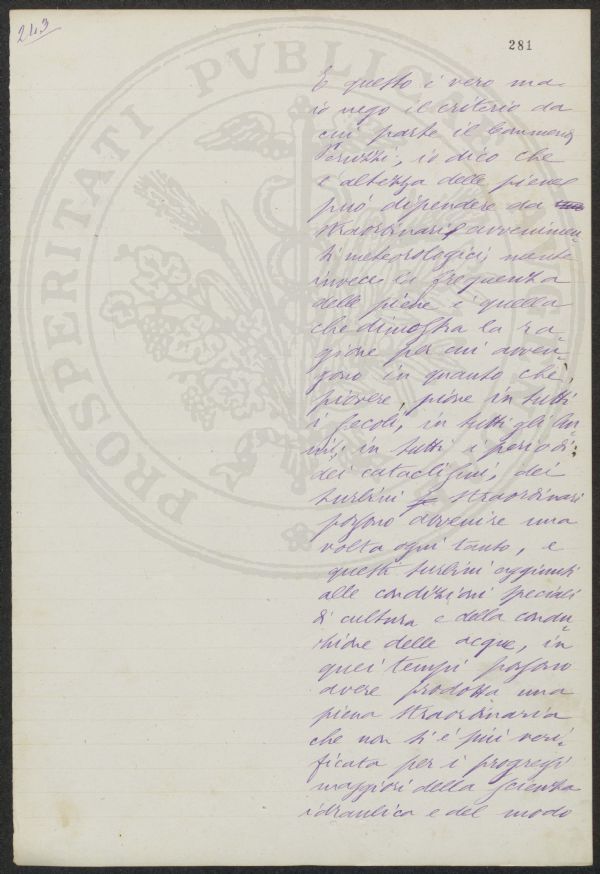 243
281
E questo è vero ma
io nego il criterio da
cui parte il Commend.
Peruzzi, io dico che
l'altezza delle piene
può dipendere da
straordinarii avvenimen-
ti meteorologici, mentre
invece la frequenza
delle piene è quella
che dimostra la ra
gione per cui avven-
gono in quanto che,
piovere, piove in tutti
i secoli, in tutti gli an
ni, in tutti i periodi;
dei cataclismi, dei
turbini straordinari
possono avvenire una
volta ogni tanto, e
questi turbini aggiunti
alle condizioni speciali
di cultura e della condu-
zione delle acque, in
quei tempi possono
avere prodotta una
piena straordinaria
che non si è più veri-
ficata per i progressi
maggiori della scienza
idraulica e del modo
PROSPERITATI PVBLICAE